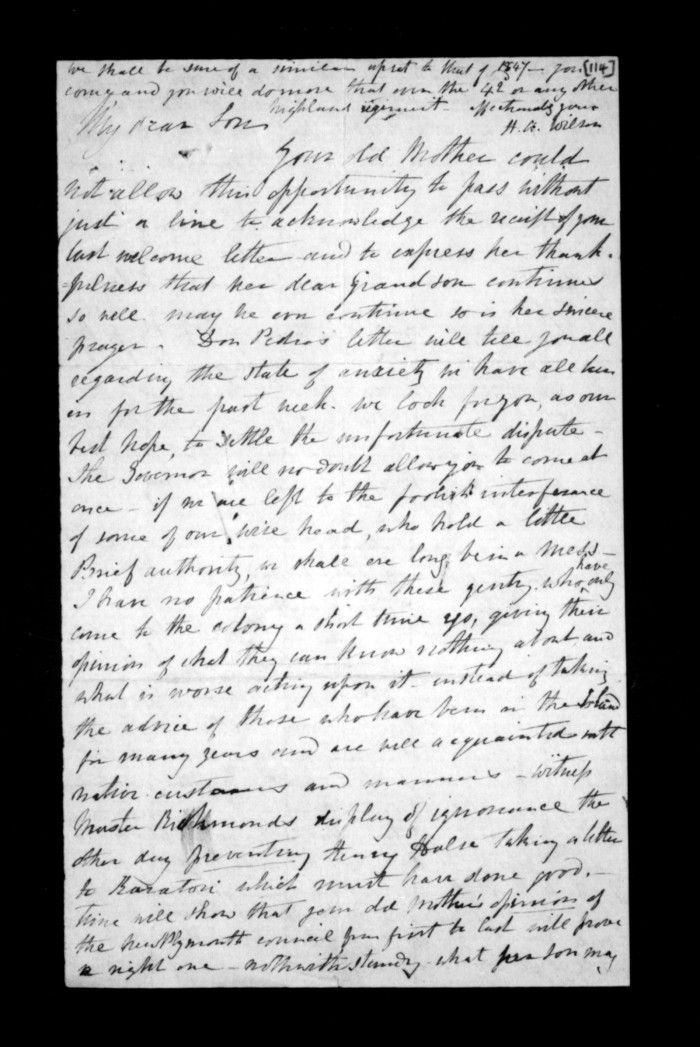 we shall be sure of a similar upset to that of 1847 - you [114]
come and you will do more that own the 42d or any other
highland regiment - affectionately yours
H. A. Wilson
My dear Son
Your old Mother could
not allow this opportunity to pass without
just a line to acknowledge the receipt of your
last welcome letter and to express her thank-
=fulness that her dear Grandson continues
so well. may he ever continue so is her sincere
prayer - Don Pedro's letter will tell you all
regarding the state of anxiety we have all been
in for the past week. we look for you, as our
best hope, to settle the unfortunate dispute -
The Governor will no doubt allow you to come at
once - if we are left to the foolish interferance
of some of our wise head, who hold a little
Brief authority, we shall ere long be in a mess -
I have no patience with these gentry. who have only
come to the colony a short time ago, giving their
opinion of what they can know nothing about and
what is worse acting upon it - instead of taking
the advice of those who have been in the Island
for many years and are well acquainted with
native customs and manners - witness
Master Richmonds display of ignorance the
other day preventing Henry Halse taking a letter
to Karatori which must have done good. -
time will show that your old mothers opinion of
the New Plymouth council from first to last will prove
a right one - nothwithstanding what son may